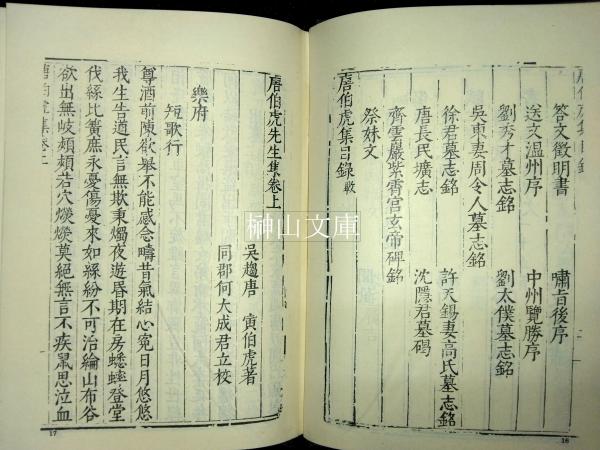 唐伯虎集目錄
答文徵明書 嘯旨後序
送文温州序 中州覽勝序
劉秀才墓志銘 劉太僕墓志銘
吳東妻周令人墓志銘
徐君墓志銘 許天錫妻高氏墓志銘
唐長民壙志 沈隱君墓碣
齊雲巖紫霄宮玄帝碑銘
祭妹文
唐伯虎集目錄
16
唐伯虎先生集卷上
吳趨唐 寅伯虎著
同郡何大成君立校
樂府
短歌行
尊酒前陳欲舉不能感念疇昔氣結心寃日月悠悠
我生告遒民言無欺秉燭夜遊昬期在房蟋蟀登堂
伐絲比簧庶永憂傷憂來如絲紛不可治綸山布谷
欲出無岐頰頰若穴熒熒莫絕無言不疾鼠思泣血
唐伯虎集卷上
17
榊山文庫